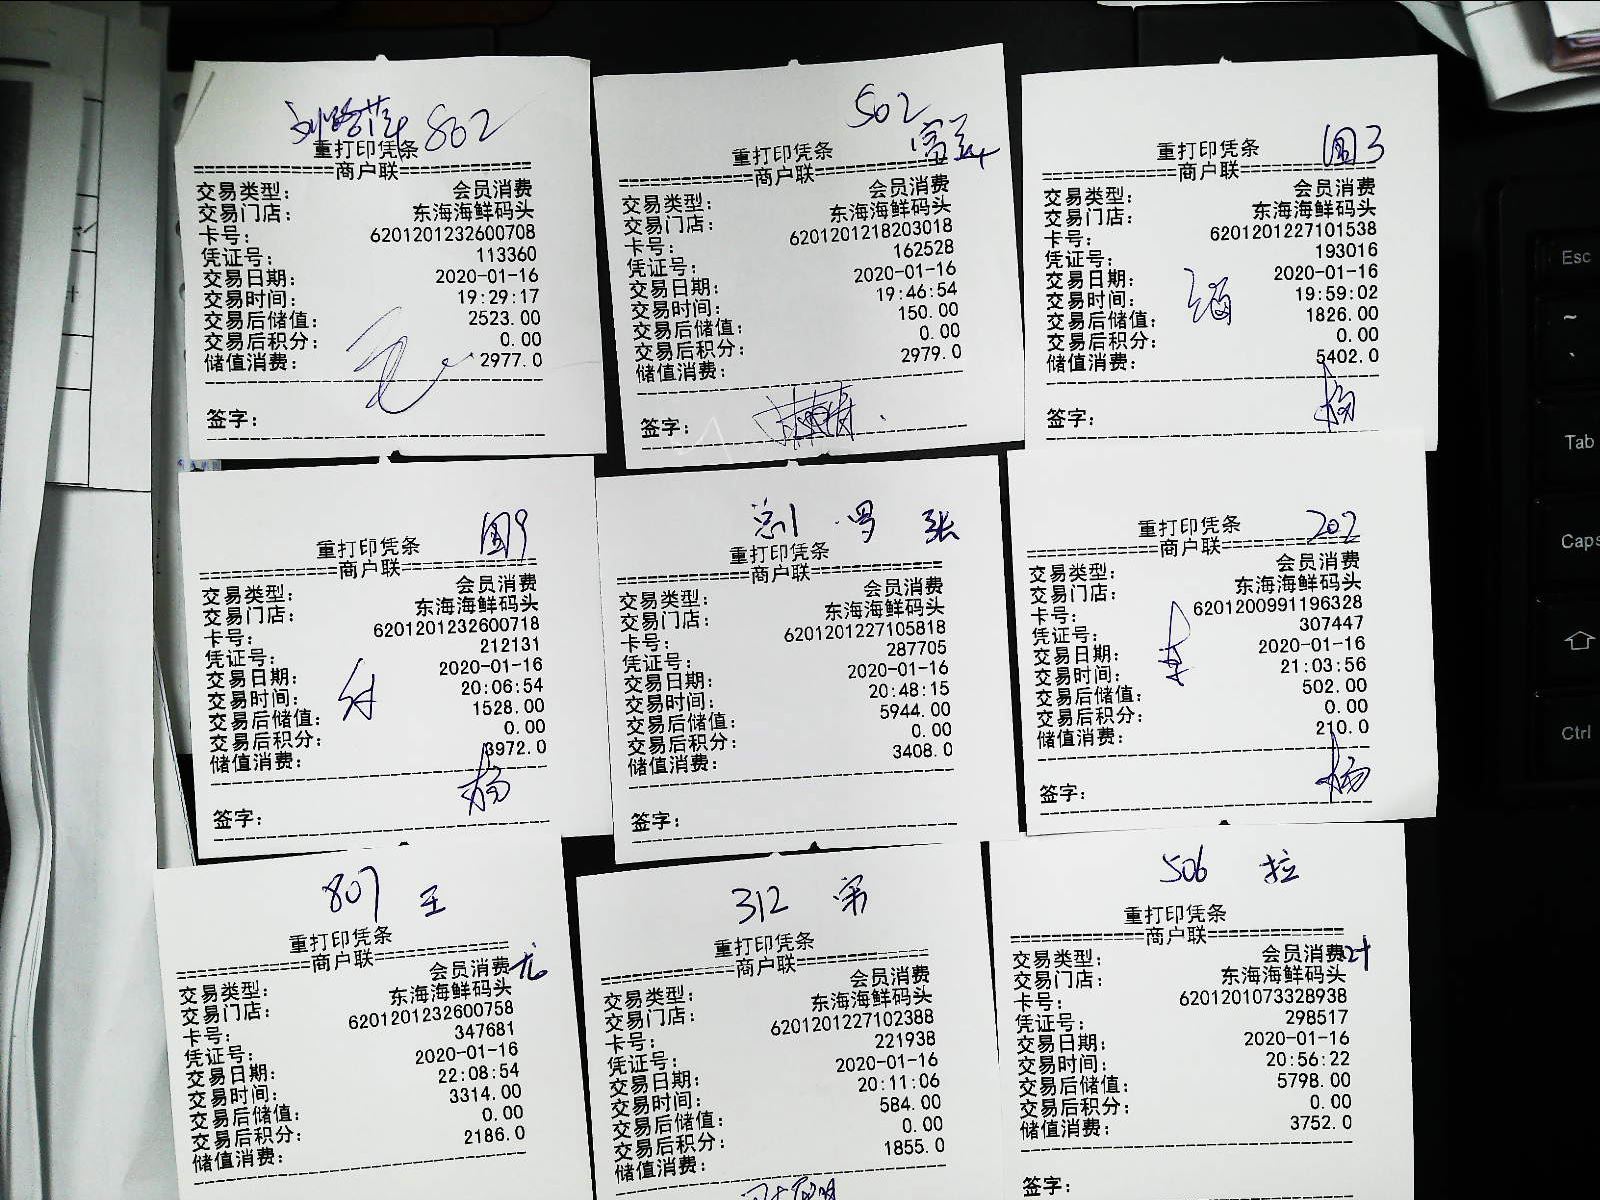 802
重打印凭条
==============商户联==============
交易类型: 会员消费
交易门店: 东海海鲜码头
卡号: 6201201232600708
凭证号: 113360
交易日期: 2020-01-16
交易时间: 19:29:17
交易后储值: 2523.00
交易后积分: 0.00
储值消费: 2977.0
签字:
502
重打印凭条
==============商户联==============
交易类型: 会员消费
交易门店: 东海海鲜码头
卡号: 6201201218203018
凭证号: 162528
交易日期: 2020-01-16
交易时间: 19:46:54
交易后储值: 150.00
交易后积分: 0.00
储值消费: 2979.0
签字:
围3
重打印凭条
==============商户联==============
交易类型: 会员消费
交易门店: 东海海鲜码头
卡号: 6201201227101538
凭证号: 193016
交易日期: 2020-01-16
交易时间: 19:59:02
交易后储值: 1826.00
交易后积分: 0.00
储值消费: 5402.0
签字: 杨
围9
重打印凭条
==============商户联==============
交易类型: 会员消费
交易门店: 东海海鲜码头
卡号: 6201201232600718
凭证号: 212131
交易日期: 2020-01-16
交易时间: 20:06:54
交易后储值: 1528.00
交易后积分: 0.00
储值消费: 3972.0
杨
签字:
张
重打印凭条
==============商户联==============
交易类型: 会员消费
交易门店: 东海海鲜码头
卡号: 6201201227105818
凭证号: 287705
交易日期: 2020-01-16
交易时间: 20:48:15
交易后储值: 5944.00
交易后积分: 0.00
储值消费: 3408.0
签字:
202
重打印凭条
==============商户联==============
交易类型: 会员消费
交易门店: 东海海鲜码头
卡号: 6201200991196328
凭证号: 307447
交易日期: 2020-01-16
交易时间: 21:03:56
交易后储值: 502.00
交易后积分: 0.00
储值消费: 210.0
杨
签字:
807 王
重打印凭条
==============商户联==============
交易类型: 会员消费
交易门店: 东海海鲜码头
卡号: 6201201232600758
凭证号: 347681
交易日期: 2020-01-16
交易时间: 22:08:54
交易后储值: 3314.00
交易后积分: 0.00
储值消费: 2186.0
312
重打印凭条
==============商户联==============
交易类型: 会员消费
交易门店: 东海海鲜码头
卡号: 6201201227102388
凭证号: 221938
交易日期: 2020-01-16
交易时间: 20:11:06
交易后储值: 584.00
交易后积分: 0.00
储值消费: 1855.0
506 拉
重打印凭条
==============商户联==============
交易类型: 会员消费
交易门店: 东海海鲜码头
卡号: 6201201073328938
凭证号: 298517
交易日期: 2020-01-16
交易时间: 20:56:22
交易后储值: 5798.00
交易后积分: 0.00
储值消费: 3752.0
签字:
Esc
~
Tab
Caps
Ctrl